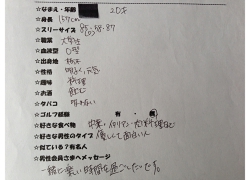 ☆なまえ・年齢 20才
☆身長 157cm
☆スリーサイズ 85・58・87
☆職業 大学生
☆血液型 O型
☆出身地 栃木
☆性格 明るく元気
☆趣味 料理
☆お酒 飲む
☆タバコ 吸わない
☆ゴルフ経験 有・無
☆好きな食べ物
☆好きな男性のタイプ 優しくて面白い人
☆似ている?有名人
☆男性会員さまへメッセージ
一緒に楽しい時間を過ごしたいです。